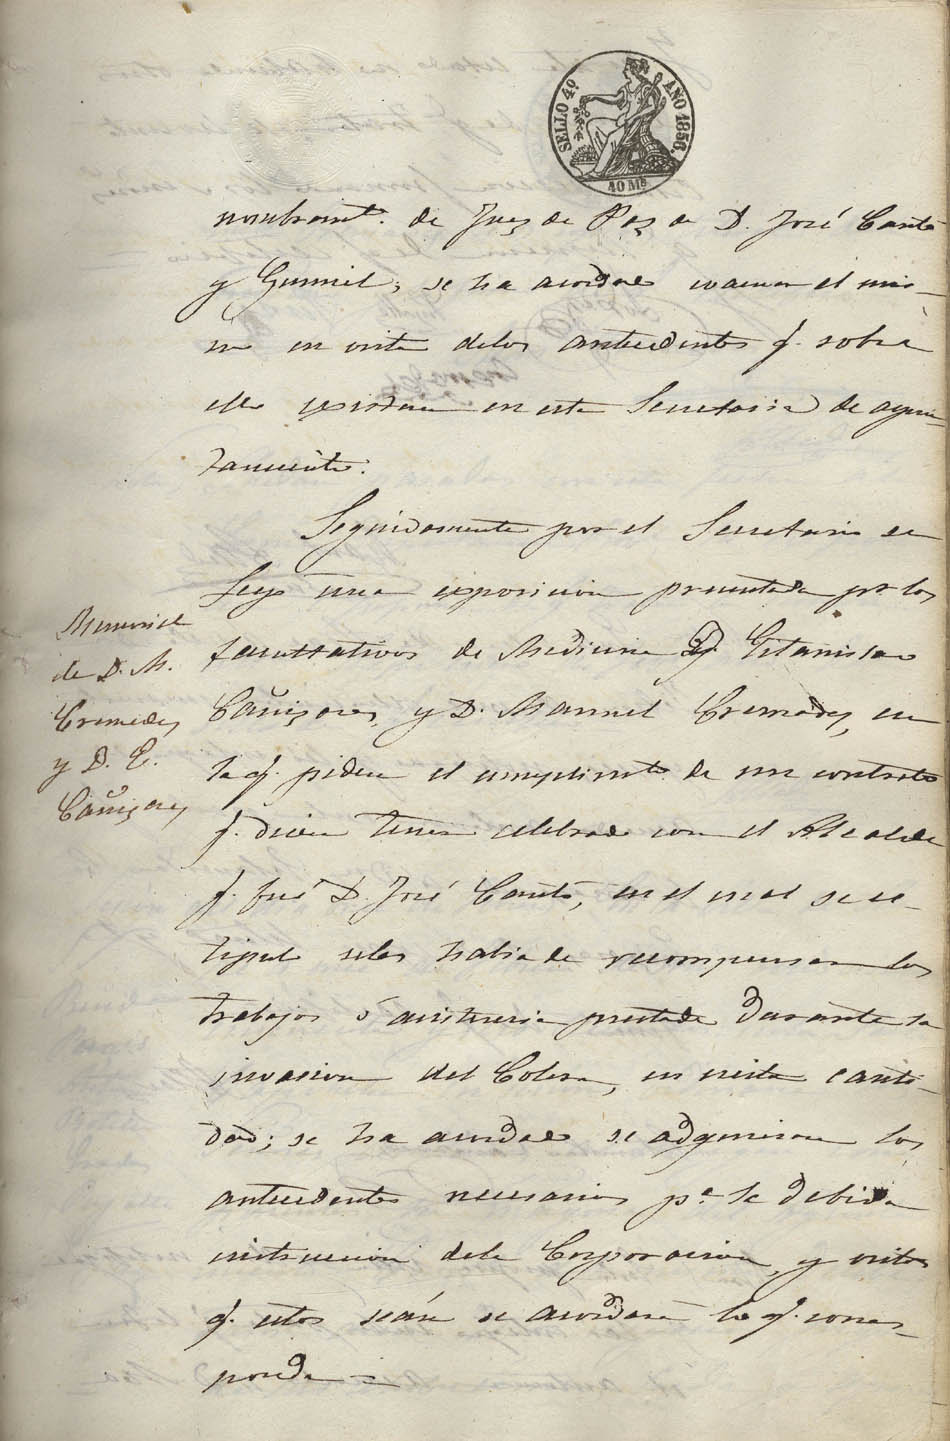 SELLO 4º AÑO 1856.
40 Ms
nombramt. de Juez de Paz a D. José Cantó
y Gumiel; se ha acordado evacuar el mis-
mo en vista delos antecedentes q. sobre
ello existan en esta Secretaria de ayun-
tamiento.
Seguidamente por el Secretario se
leyo una exposicion presentada por los
facultativos de Medicina D. Estanislao
Cañizares, y D. Manuel Cremades, en
la q. piden el cumplimto. de un contrato
q. dicen tener celebrado con el Alcalde
q. fué D. José Cantó, en el cual se es-
tipuló seles habia de recompensar los
trabajos ó asistencia prestada durante la
invasion del Colera, en cierta canti-
dad; se ha acordado se adquieran los
antecedentes necesarios pa. la debida
instruccion dela Corporacion, y vistos
q. estos seán se acordará lo q. corres-
ponda =
Memorial
de D. M.
Cremades
y D. E.
Cañizares